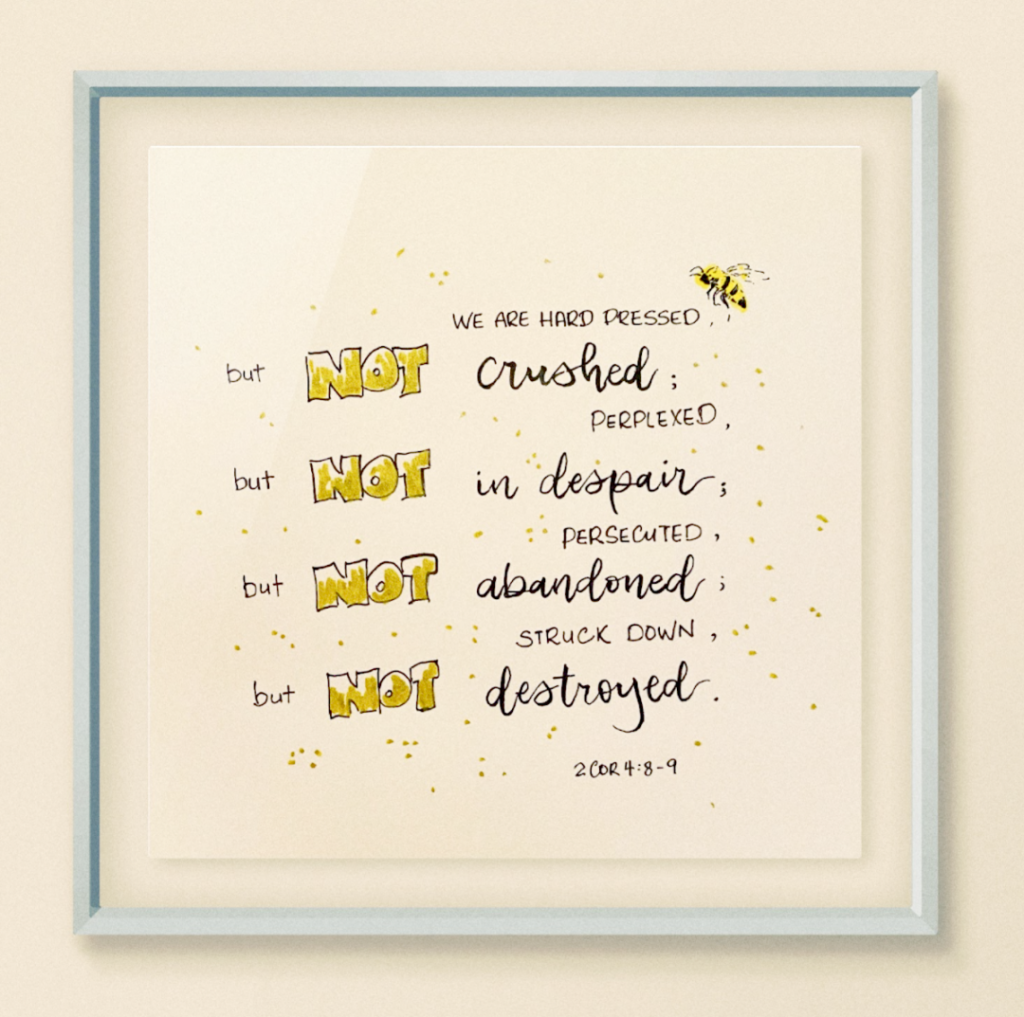 WE ARE HARD PRESSED,
but NOT crushed;
PERPLEXED,
but NOT in despair;
PERSECUTED,
but NOT abandoned;
STRUCK DOWN,
but NOT destroyed.
2 COR 4:8-9